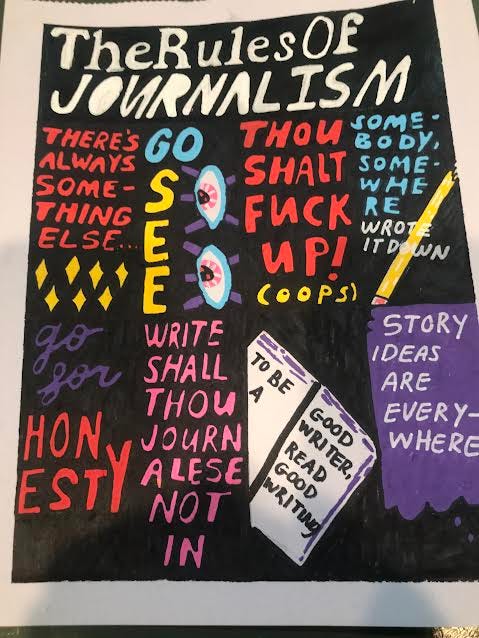 TheRulesOF
JOURNALISM
THERE'S
ALWAYS
SOME-
THING
ELSE...
GO
S
E
E
THOU
SHALT
FUCK
UP!
(OOPS)
SOME-
BODY,
SOME-
WHE
RE
WROTE
IT DOWN
go
for
HON
ESTY
WRITE
SHALL
THOU
JOURN
ALESE
NOT
IN
TO BE
A
GOOD
WRITER,
READ
GOOD
WRITING
STORY
IDEAS
ARE
EVERY-
WHERE